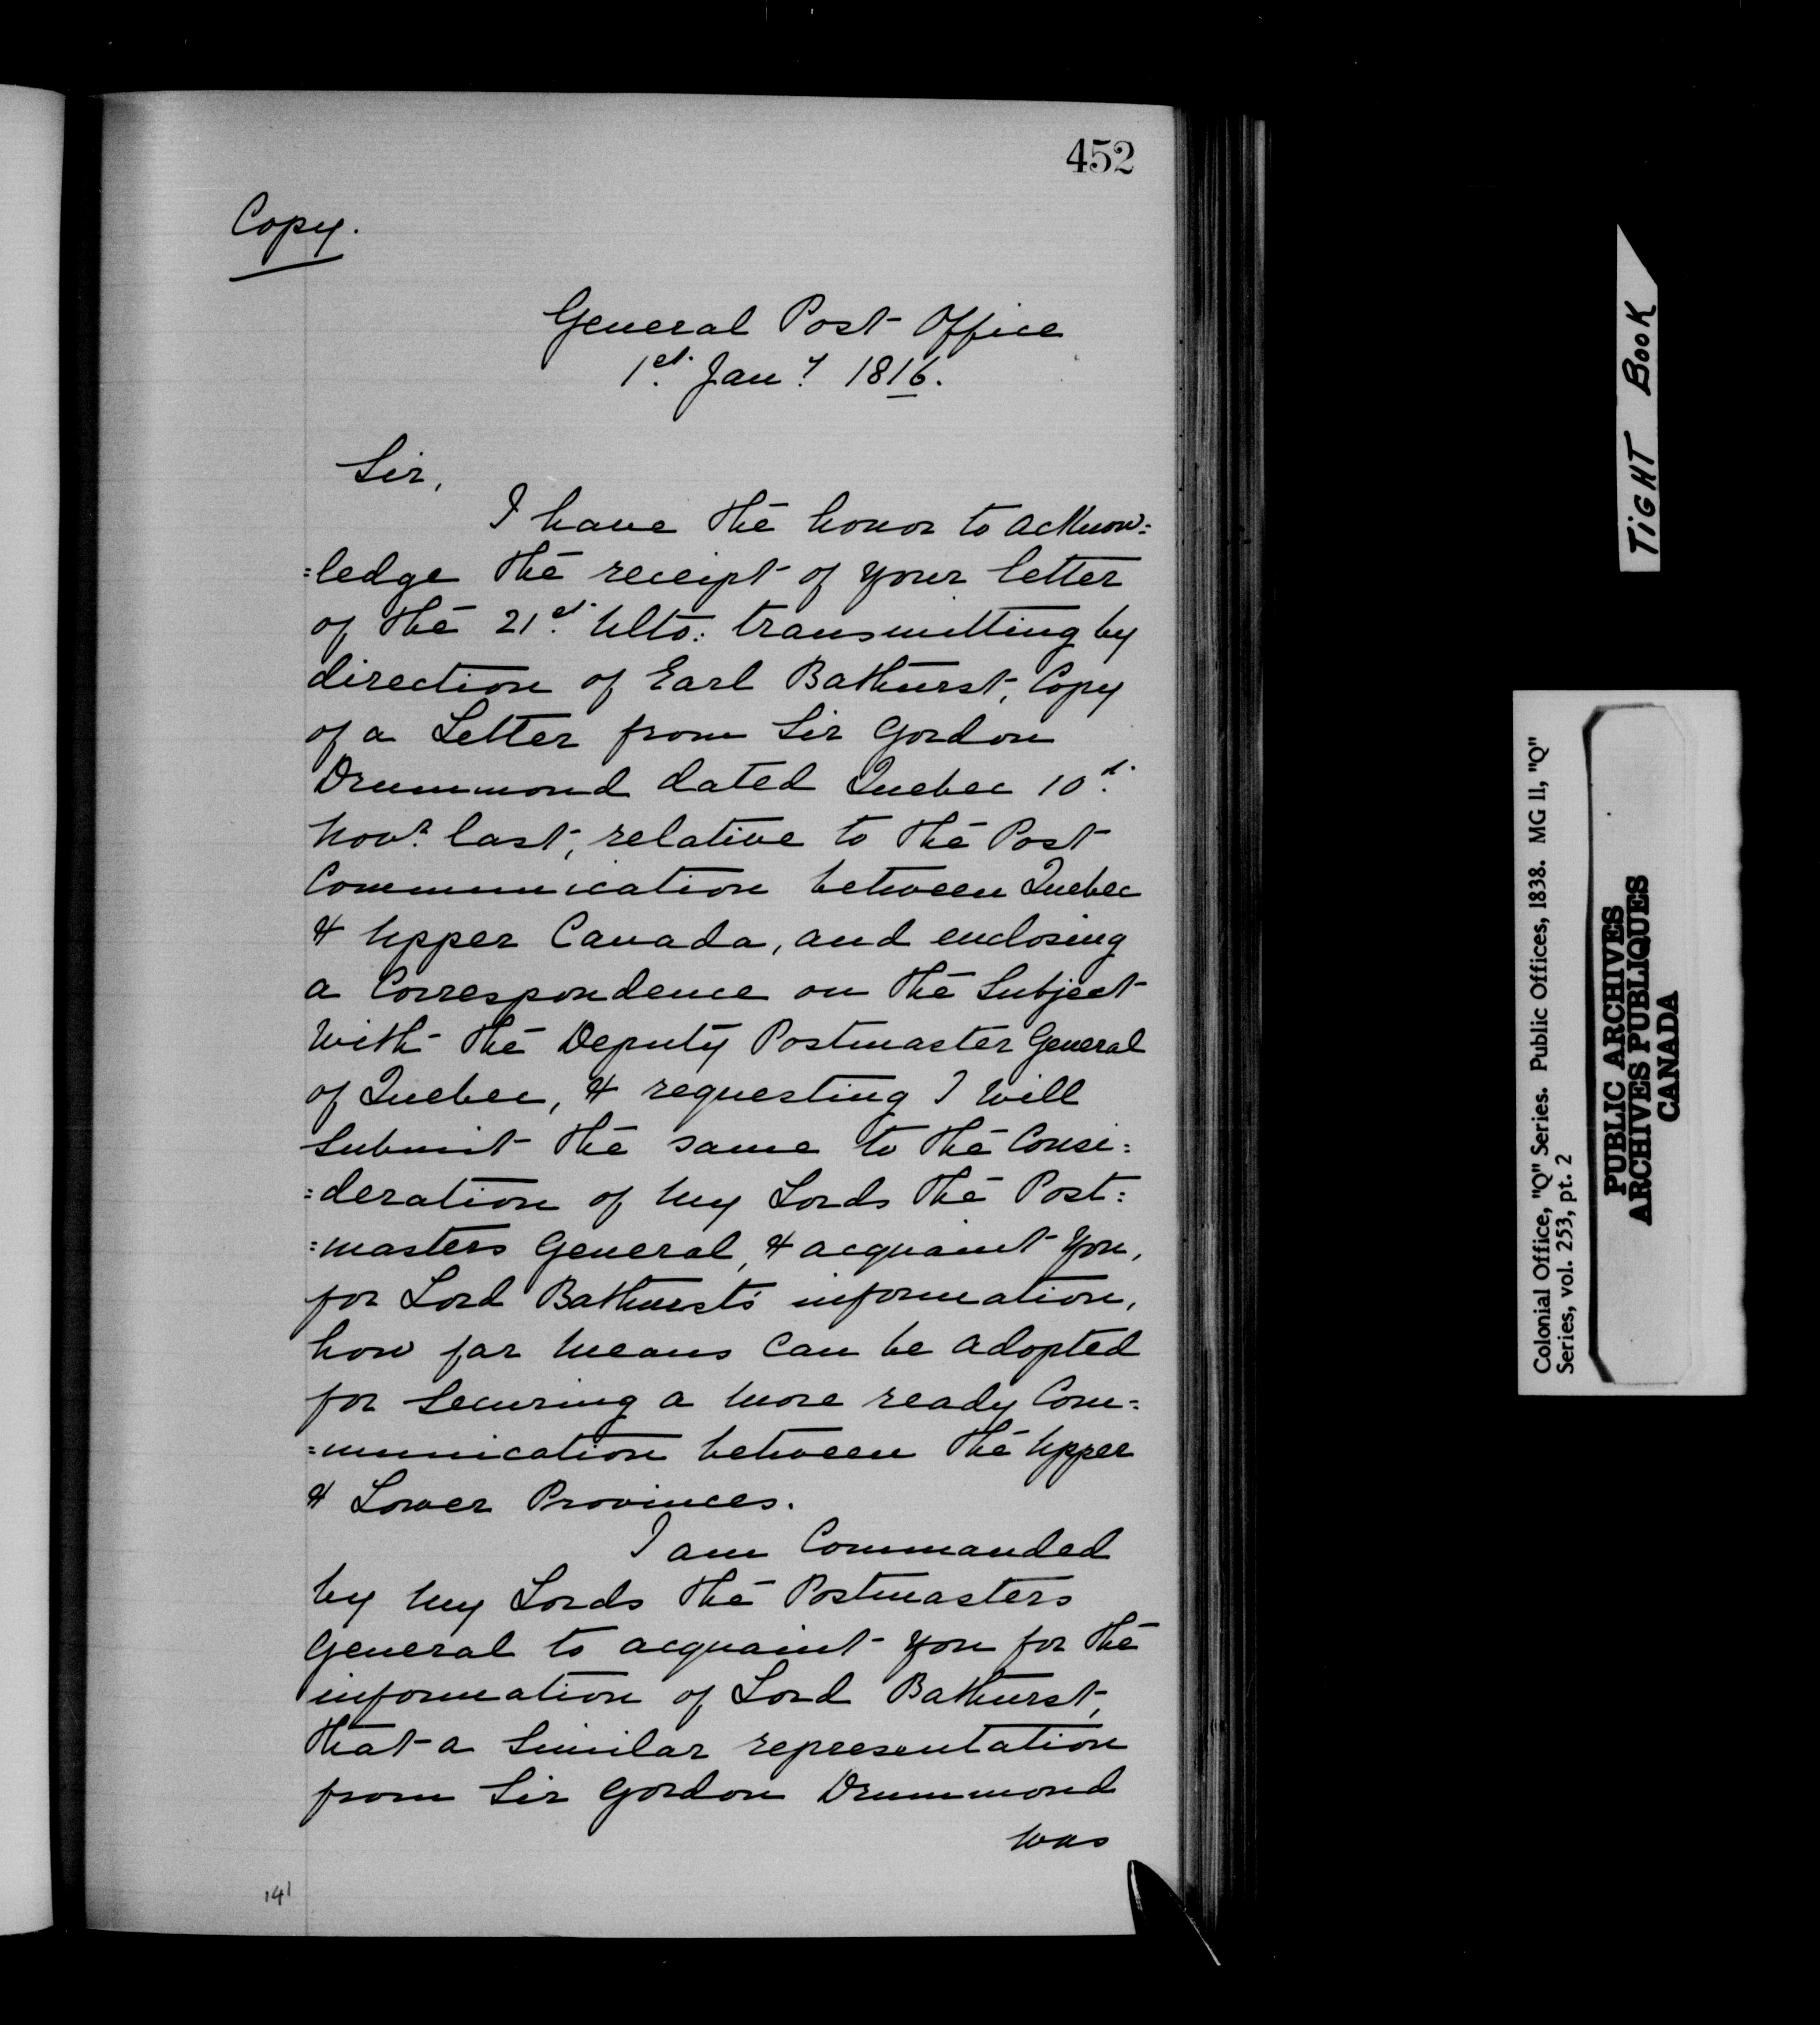 452
Copy.
General Post Office
1st. Jany. 1816.
Sir,
I have the honor to acknow=
=ledge the receipt of your letter
of the 21st. Ulto: transmitting by
direction of Earl Bathurst, Copy
of a Letter from Sir Gordon
Drummond dated Quebec 10th.
Novr. last, relative to the Post
Communication between Quebec
& Upper Canada, and enclosing
a Correspondence on the Subject
With the Deputy Postmaster General
of Quebec, & requesting I Will
Submit the same to the Consi=
=deration of My Lords the Post=
=masters General, & acquaint You,
for Lord Bathurst's information,
how far Means Can be adopted
for Securing a More ready Com=
=munication between the Upper
& Lower Provinces.
I am Commanded
by My Lords the Postmasters
General to acquaint You for the
information of Lord Bathurst,
that a Similar representation
from Sir Gordon Drummond
Was
141
TIGHT BOOK
Colonial Office, "Q" Series. Public Offices, 1838. MG 11, "Q"
Series, vol. 253, pt. 2
PUBLIC ARCHIVES
ARCHIVES PUBLIQUES
CANADA